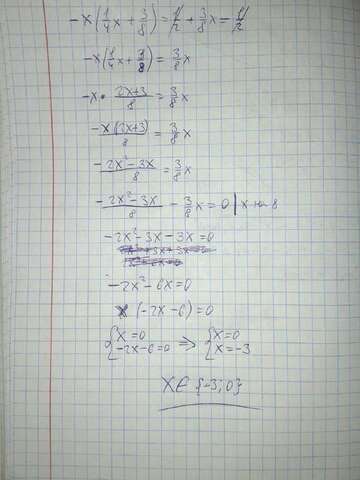 -x(1/4x + 3/8) = 1/2 + 3/8x = 1/2
-x(1/4x + 3/8) = 3/8x
-x · (2x+3)/8 = 3/8x
-x(2x+3)/8 = 3/8x
(-2x² - 3x)/8 = 3/8x
(-2x² - 3x)/8 - 3/8x = 0 | x на 8
-2x² - 3x - 3x = 0
-2x² - 6x = 0
x(-2x - 6) = 0
{x = 0 => {x = 0
-2x - 6 = 0 x = -3
x ∈ {-3; 0}